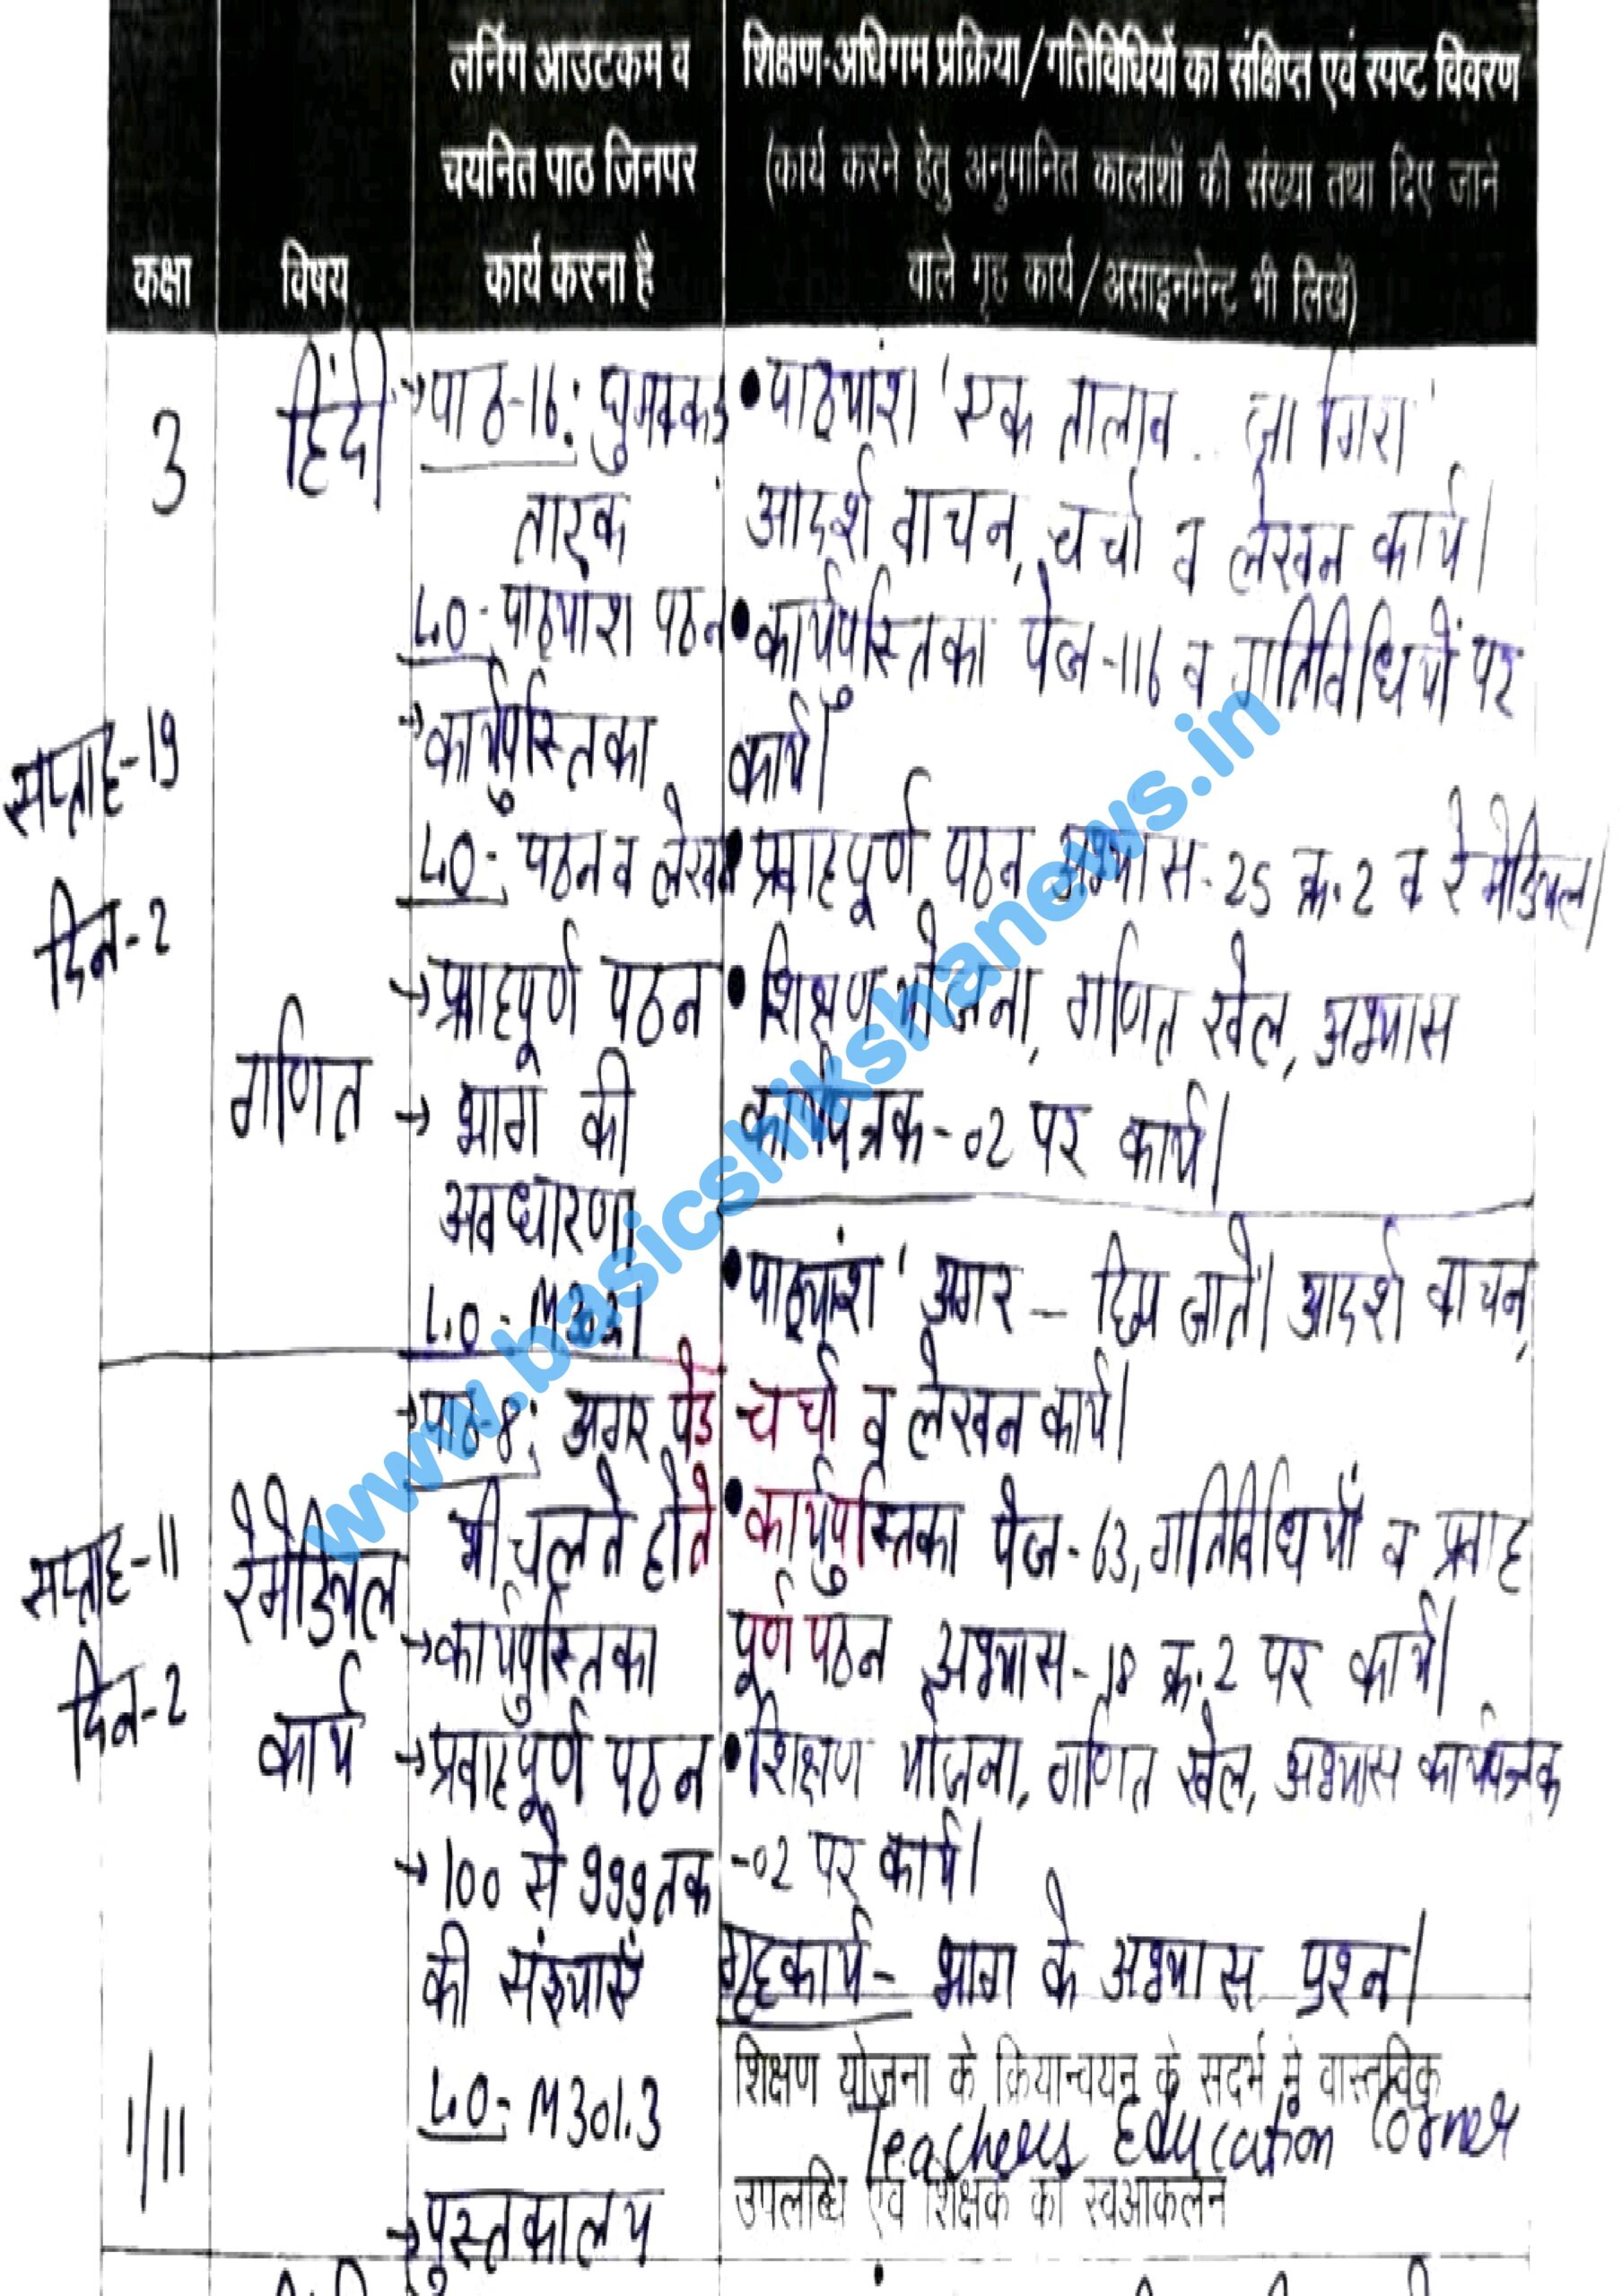 कक्षा
विषय
लर्निंग आउटकम व
चयनित पाठ जिनपर
कार्य करना है
शिक्षण-अधिगम प्रक्रिया/गतिविधियों का संक्षिप्त एवं स्पष्ट विवरण
(कार्य करने हेतु अनुमानित कालांशों की संख्या तथा दिए जाने
वाले गृह कार्य/असाइनमेन्ट भी लिखें)
3
सप्ताह-19
दिन-2
हिंदी
→पाठ-16: घुमक्कड़
तारक
L.O- पाठ्यांश पठन
→कार्यपुस्तिका
L.O- पठन व लेखन
→प्रवाहपूर्ण पठन
• पाठ्यांश 'एक तालाब .. जा गिरा'
आदर्श वाचन, चर्चा व लेखन कार्य।
• कार्यपुस्तिका पेज-116 व गतिविधियों पर
कार्य।
• प्रवाहपूर्ण पठन अभ्यास-25 क्र.2 व रेमेडियल।
गणित
→ भाग की
अवधारणा
L.O-
• शिक्षण योजना, गणित खेल, अभ्यास
कार्यपत्रक-02 पर कार्य।
सप्ताह-11
दिन-2
रेमेडियल
कार्य
→पाठ-8: अगर पेड़
भी चलते होते
→कार्यपुस्तिका
→प्रवाहपूर्ण पठन
→100 से 999 तक
की संख्याएँ
L.O- M301.3
→पुस्तकालय
• पाठ्यांश 'अगर – छिप जाते। आदर्श वाचन,
चर्चा व लेखन कार्य।
• कार्यपुस्तिका पेज-63, गतिविधियों व प्रवाह
पूर्ण पठन अभ्यास-18 क्र.2 पर कार्य।
• शिक्षण योजना, गणित खेल, अभ्यास कार्यपत्रक
-02 पर कार्य।
गृहकार्य- भाग के अभ्यास प्रश्न।
1/11
शिक्षण योजना के क्रियान्वयन के संदर्भ में वास्तविक
Teachers Education Corner
उपलब्धि एवं शिक्षक का स्वआकलन
www.basicshikshanews.in